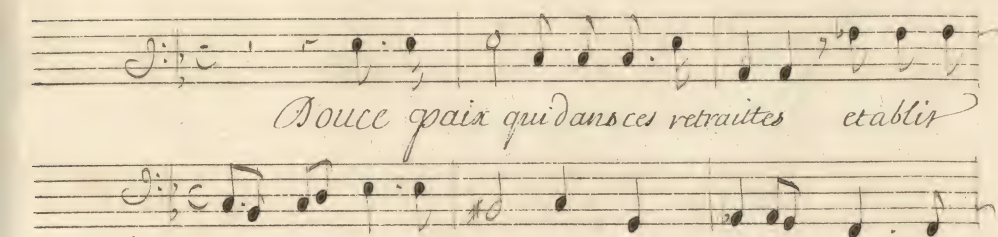 Douce paix qui dans ces retraittes etablir